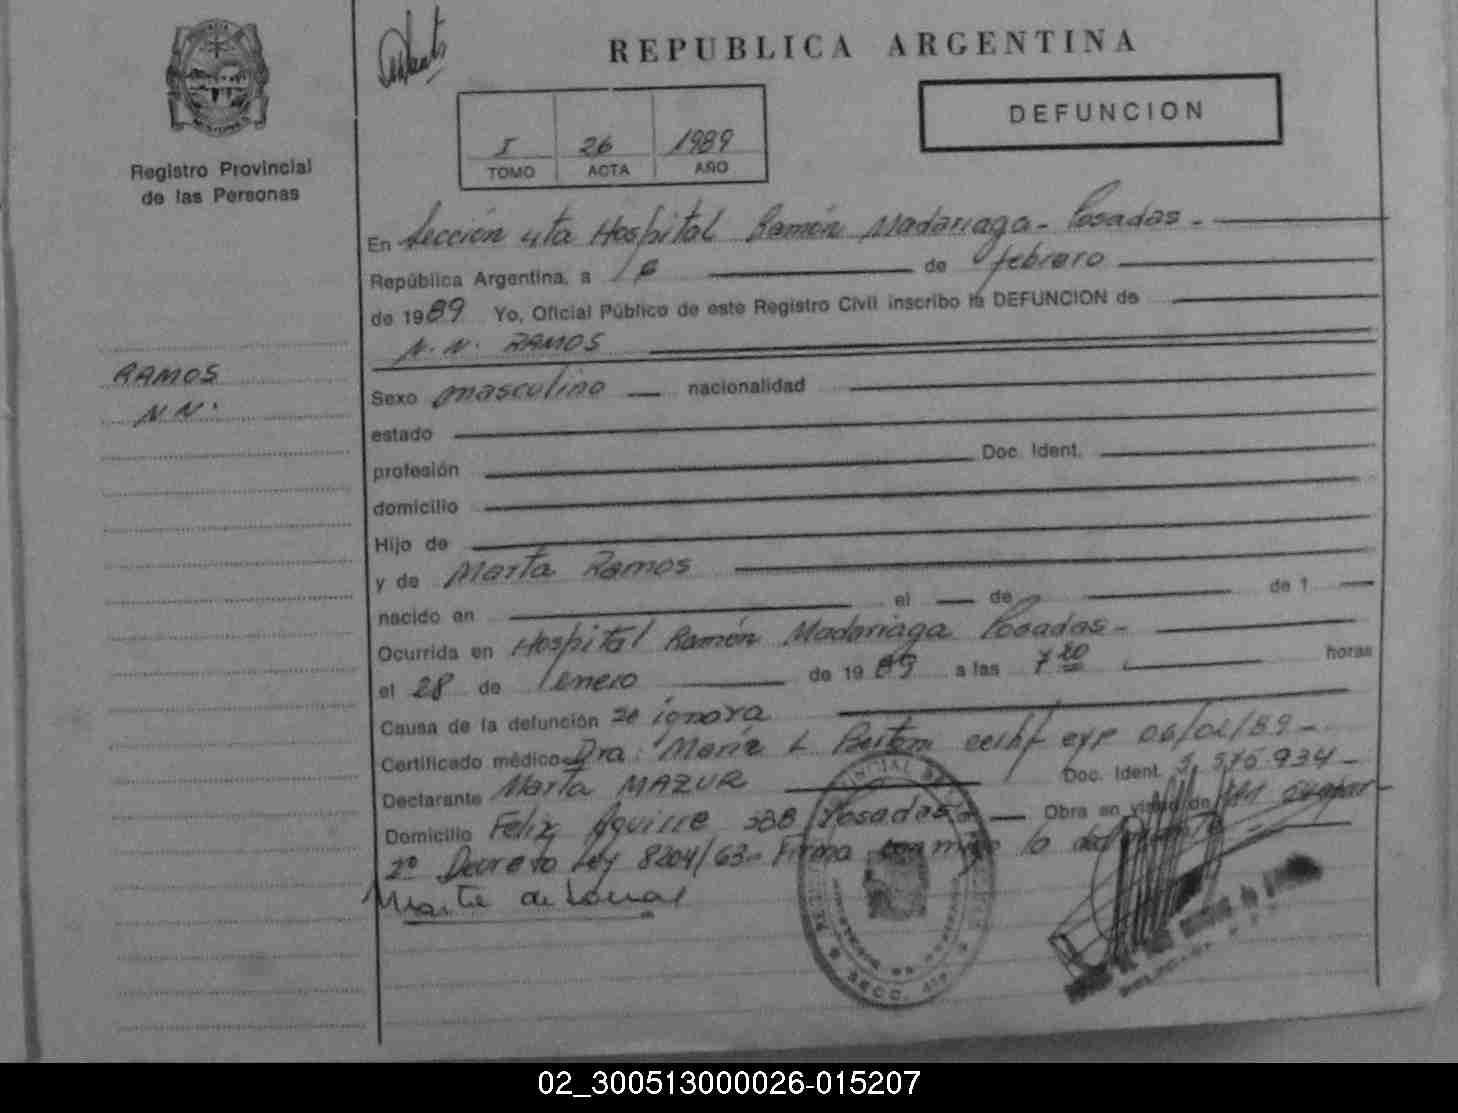 REPUBLICA ARGENTINA
DEFUNCION
I 26 1989
TOMO ACTA AÑO
Registro Provincial
de las Personas
En Sección 4ta Hospital Ramón Madariaga - Posadas -
República Argentina, a de febrero
de 1989 Yo, Oficial Público de este Registro Civil inscribo la DEFUNCION de
N.N. RAMOS
RAMOS
N N.
Sexo masculino nacionalidad
estado
profesión Doc. Ident.
domicilio
Hijo de
y de Marta Ramos
nacido en el de de 1
Ocurrida en Hospital Ramón Madariaga Posadas -
el 28 de enero de 1989 a las 7 20 horas
Causa de la defunción se ignora
Certificado médico Dra. María L certif exp
Declarante Marta MAZUR Doc. Ident. 576.934 -
Domicilio Feliz Aguirre 388 Posadas - Obra en
2º Decreto Ley 8204/63 - Firma la
SECC. 4ta
02_300513000026-015207